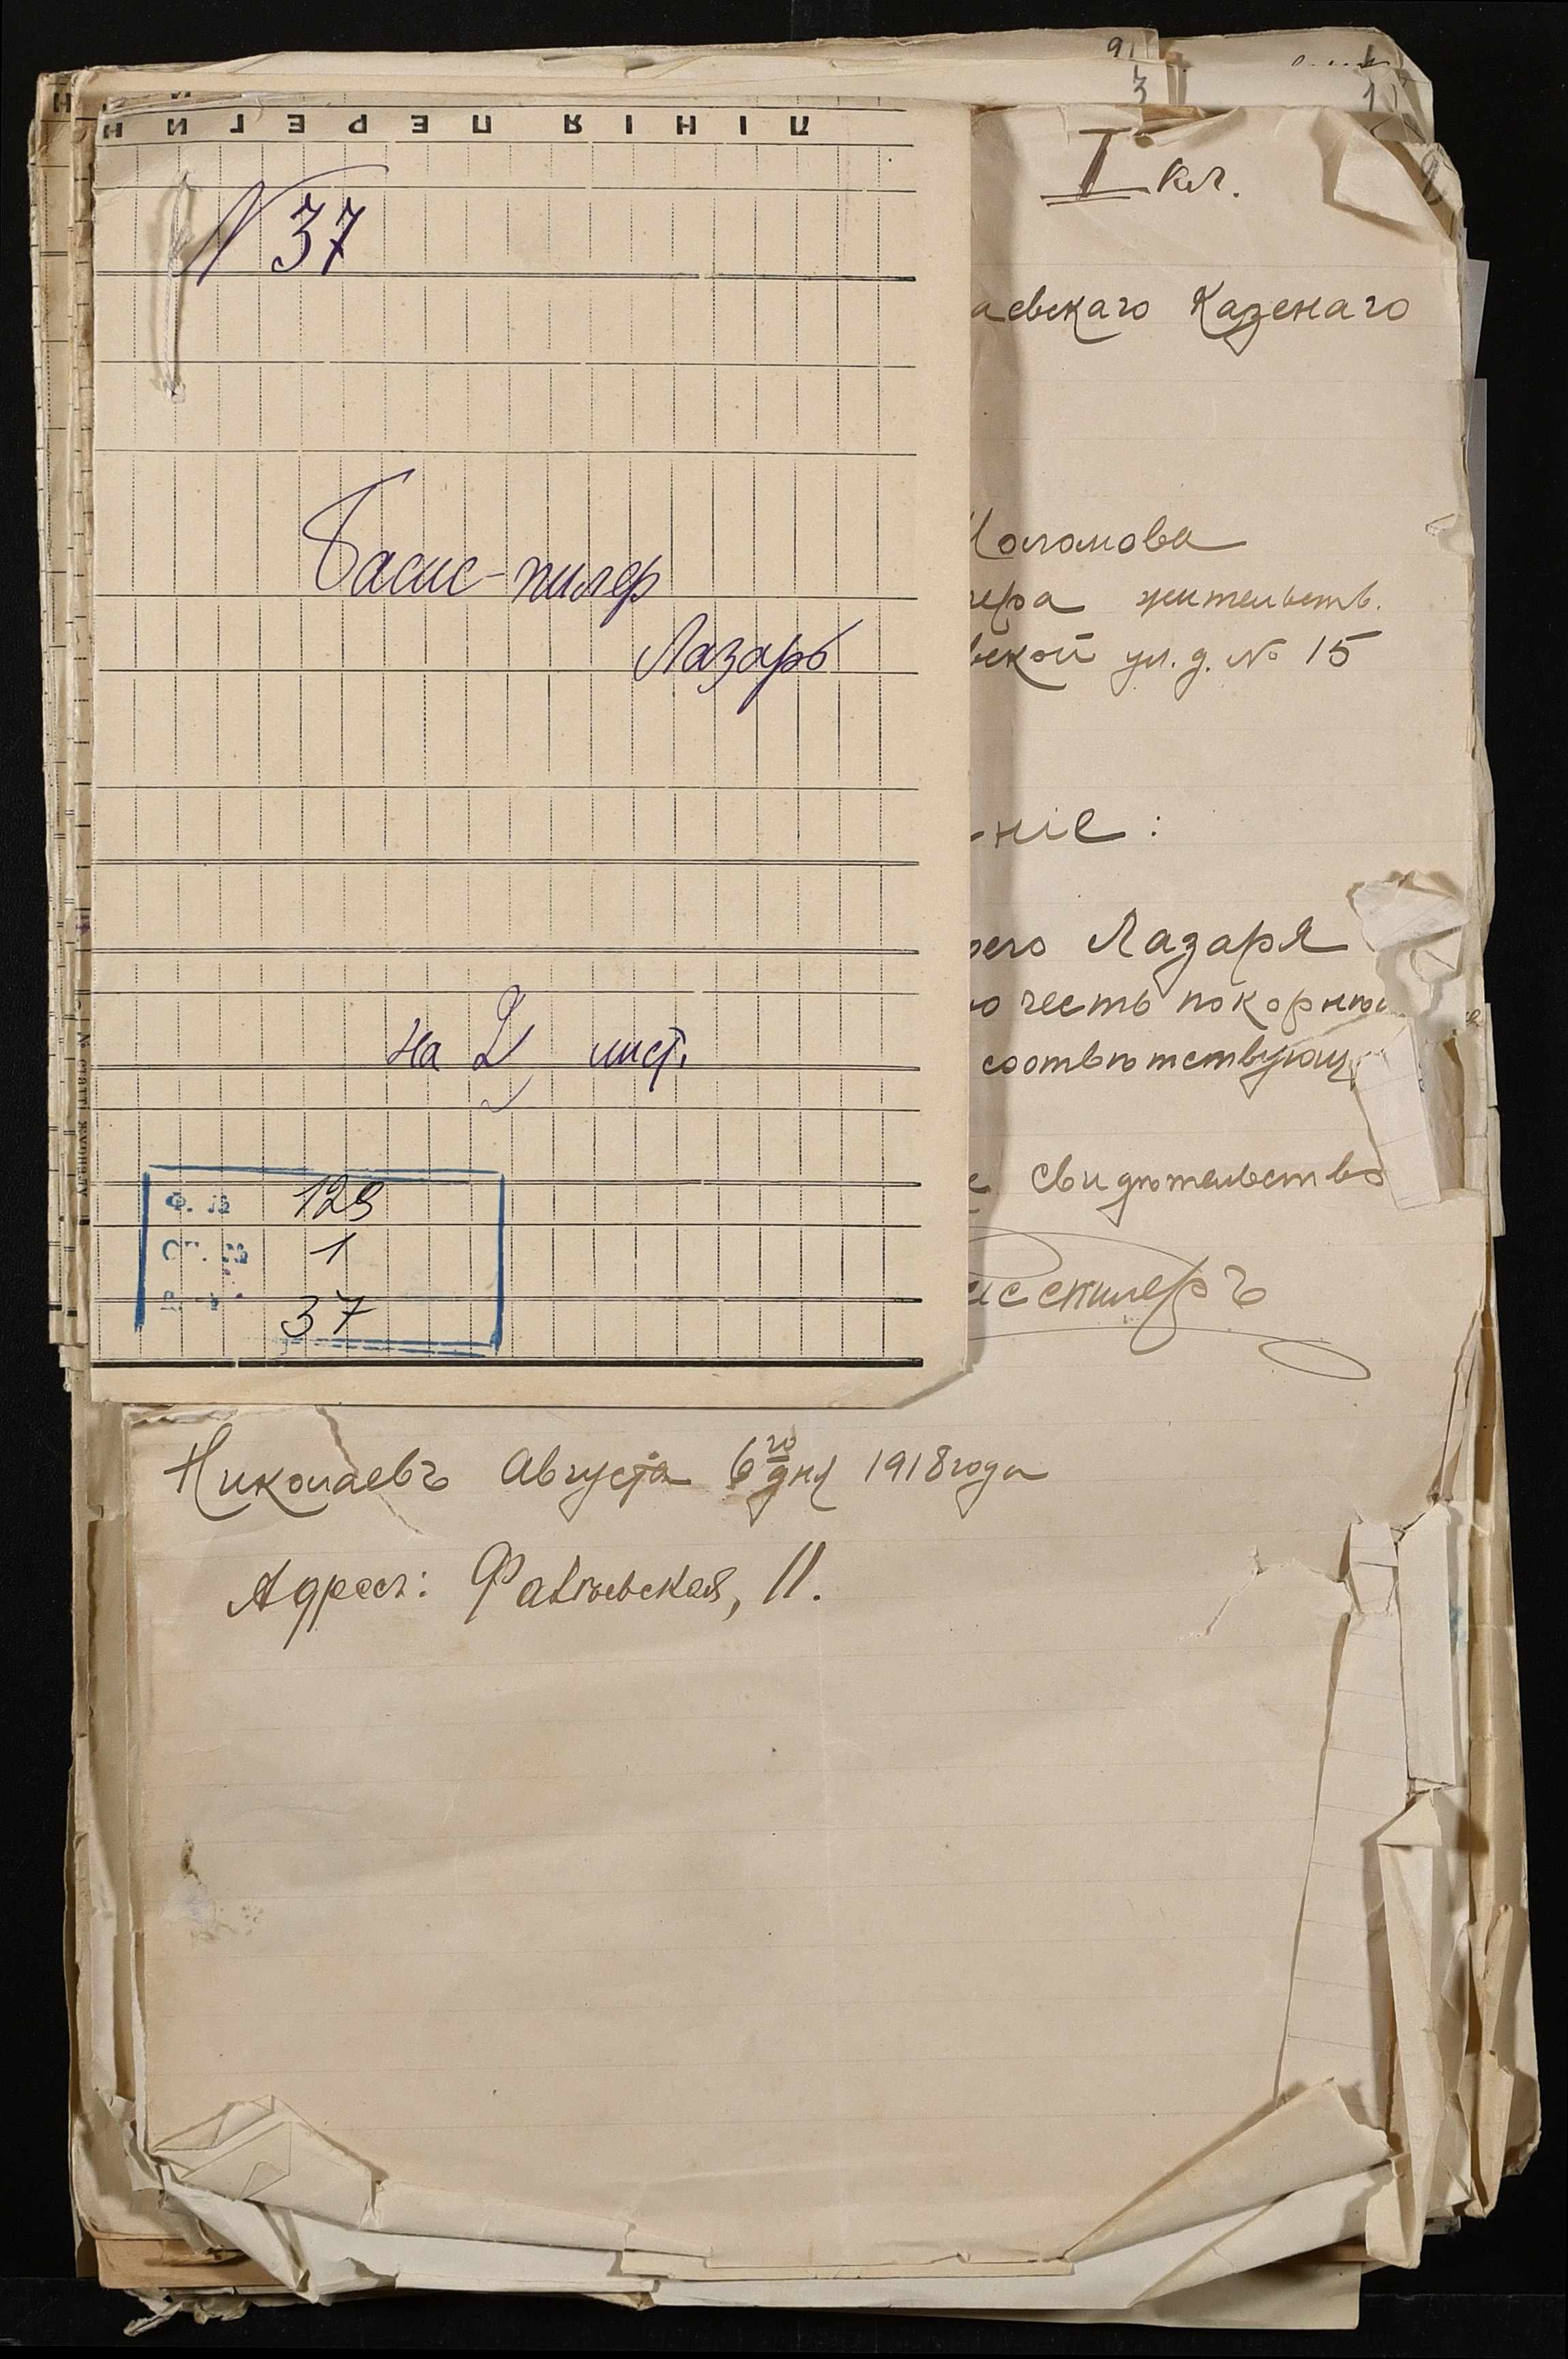 ЛІНІЯ ПЕРЕГИН
N 37
Басис-тилер
Лазарь
на 2 лист.
Ф. № 129
ОП. № 1
37
91
3
I кл.
аевскаго Казенаго
жительств.
ской ул. д. № 15
ніе:
Лазаря
честь покорнѣй
соотвѣтствующ
свидѣтельство
Николаевъ Августа 6го дня 1918 года
Адресъ: Фалѣевская, 11.